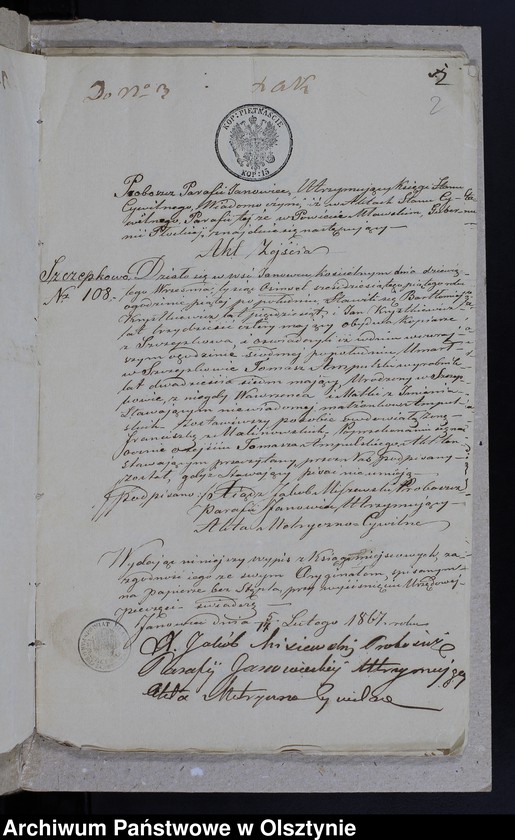 Do No 3
2
2
KOP: PIETNAŚCIE
KOP: 15
Proboszcz Parafii Janowiec, Utrzymujący Księgi Stanu
Cywilnego, Wiadomo czyni, iż w Aktach Stanu Cy-
wilnego, Parafii tej że w Powiecie Mławskim, Guber-
nii Płockiej, znajduie się następujący
Akt Zejścia
Szczepkowo
Nr 108.
Działo się w wsi Janowcu kościelnym dnia dziewią-
tego Września tysiąc Ośmset sześćdziesiątego piątego roku
o godzinie piątej po południu, Stawili się Bartłomiej
lat pięćdziesiąt, i Jan
lat trzydzieści cztery mający obydwa
z Szczepkowa, i oswiadczyli iż w dniu wczoraj-
szym o godzinie siódmej po południu Umarł
w Szczepkowie Tomasz Ampulski wyrobnik
lat dwadzieścia siedm mający Urodzony w Szczep-
kowie, z niegdy Wawrzeńca i Matki z Imienia
Stawającym niewiadomej małżonków Ampul-
skich Zostawiwszy po sobie owdowiałą żonę
Franciszkę z Malinowskich, Po przekonaniu się na-
ocznie o zejściu Tomasza Ampulskiego, Akt ten
stawającym przeczytany przez Nas podpisany
został, gdyż Stawający pisać nie umieją
(Podpisano) Xiądz Jakob Miszewski Proboszcz
Parafii Janowiec, Utrzymujący
Akta Metryczno Cywilne
Wydając niniejszy wypis z Ksiąg miejscowych, za
zgodność iego ze swym Oryginałem, spisanym
na papierze bez Stępla, przy wyciśnięciu Urzędowej
pieczęci świadczę
Janowiec dnia Lutego 1867. roku
X. Jakób Miszewski Proboszcz
Parafij Janowieckiej Utrzymujący
Akta Metryczno Cywilne
Archiwum Państwowe w Olsztynie